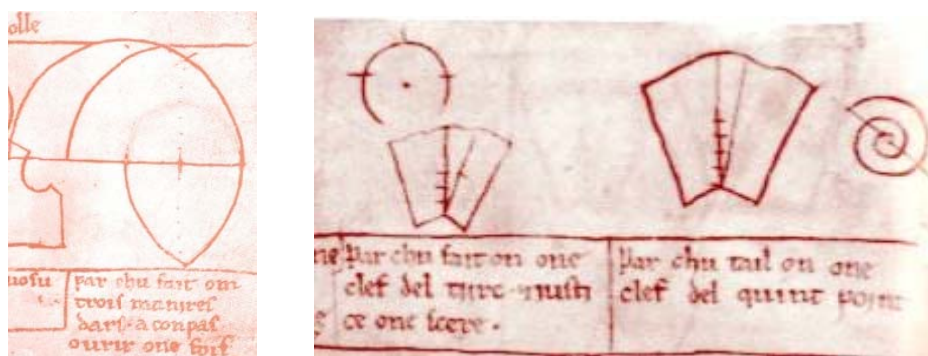 olle
par chu fait om
trois manires
dars · a conpas
ourir one fois
par chu fait on one
clef del tirc · iusti
ce one scere ·
par chu tail on one
clef del quint point